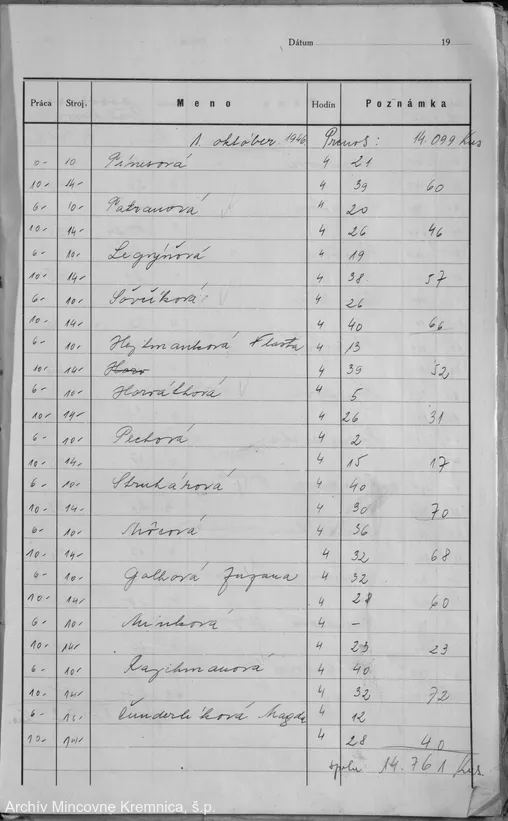 Dátum 19
Práca Stroj. Meno Hodín Poznámka
1. október 1946 Prenos: 14.099 Kus
6- 10 Pinesová 4 21
10- 14- 4 39 60
6- 10- Patranová 4 20
10- 14- 4 26 46
6- 10- 4 19
10- 14- 4 38 57
6- 10- 4 26
10- 14- 4 40 66
6- 10- 4 13
10- 14- Horv 4 39 52
6- 10- Horváthová 4 5
10- 14- 4 26 31
6- 10- Pechová 4 2
10- 14- 4 15 17
6- 10- Struhárová 4 40
10- 14- 4 30 70
6- 10- 4 36
10- 14- 4 32 68
6- 10- Zuzana 4 32
10- 14- 4 28 60
6- 10- Minková 4 -
10- 14- 4 23 23
6- 10- 4 40
10- 14- 4 32 72
6- Čunderlíková Magda 4 12
10- 14- 4 28 40
spolu 14.761 Kus
Archív Mincovne Kremnica, š.p.